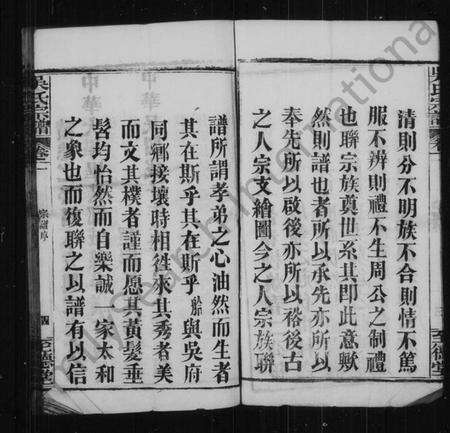 吳氏宗譜
清則分不明族不合則情不篤
服不辨則禮不生周公之制禮
也聯宗族奠世系其即此意歟
然則譜也者所以承先亦所以
奉先所以啟後亦所以裕後古
之人宗支繪圖今之人宗族聯
至德堂
譜所謂孝弟之心油然而生者
其在斯乎其在斯乎 與吳府
同鄉接壤時相徃來其秀者美
而文其樸者謹而愿其黃髮垂
髫均怡然而自樂誠一家太和
之象也而復聯之以譜有以信
吳氏宗譜
卷一
宗譜序
四
至德堂
My Search International